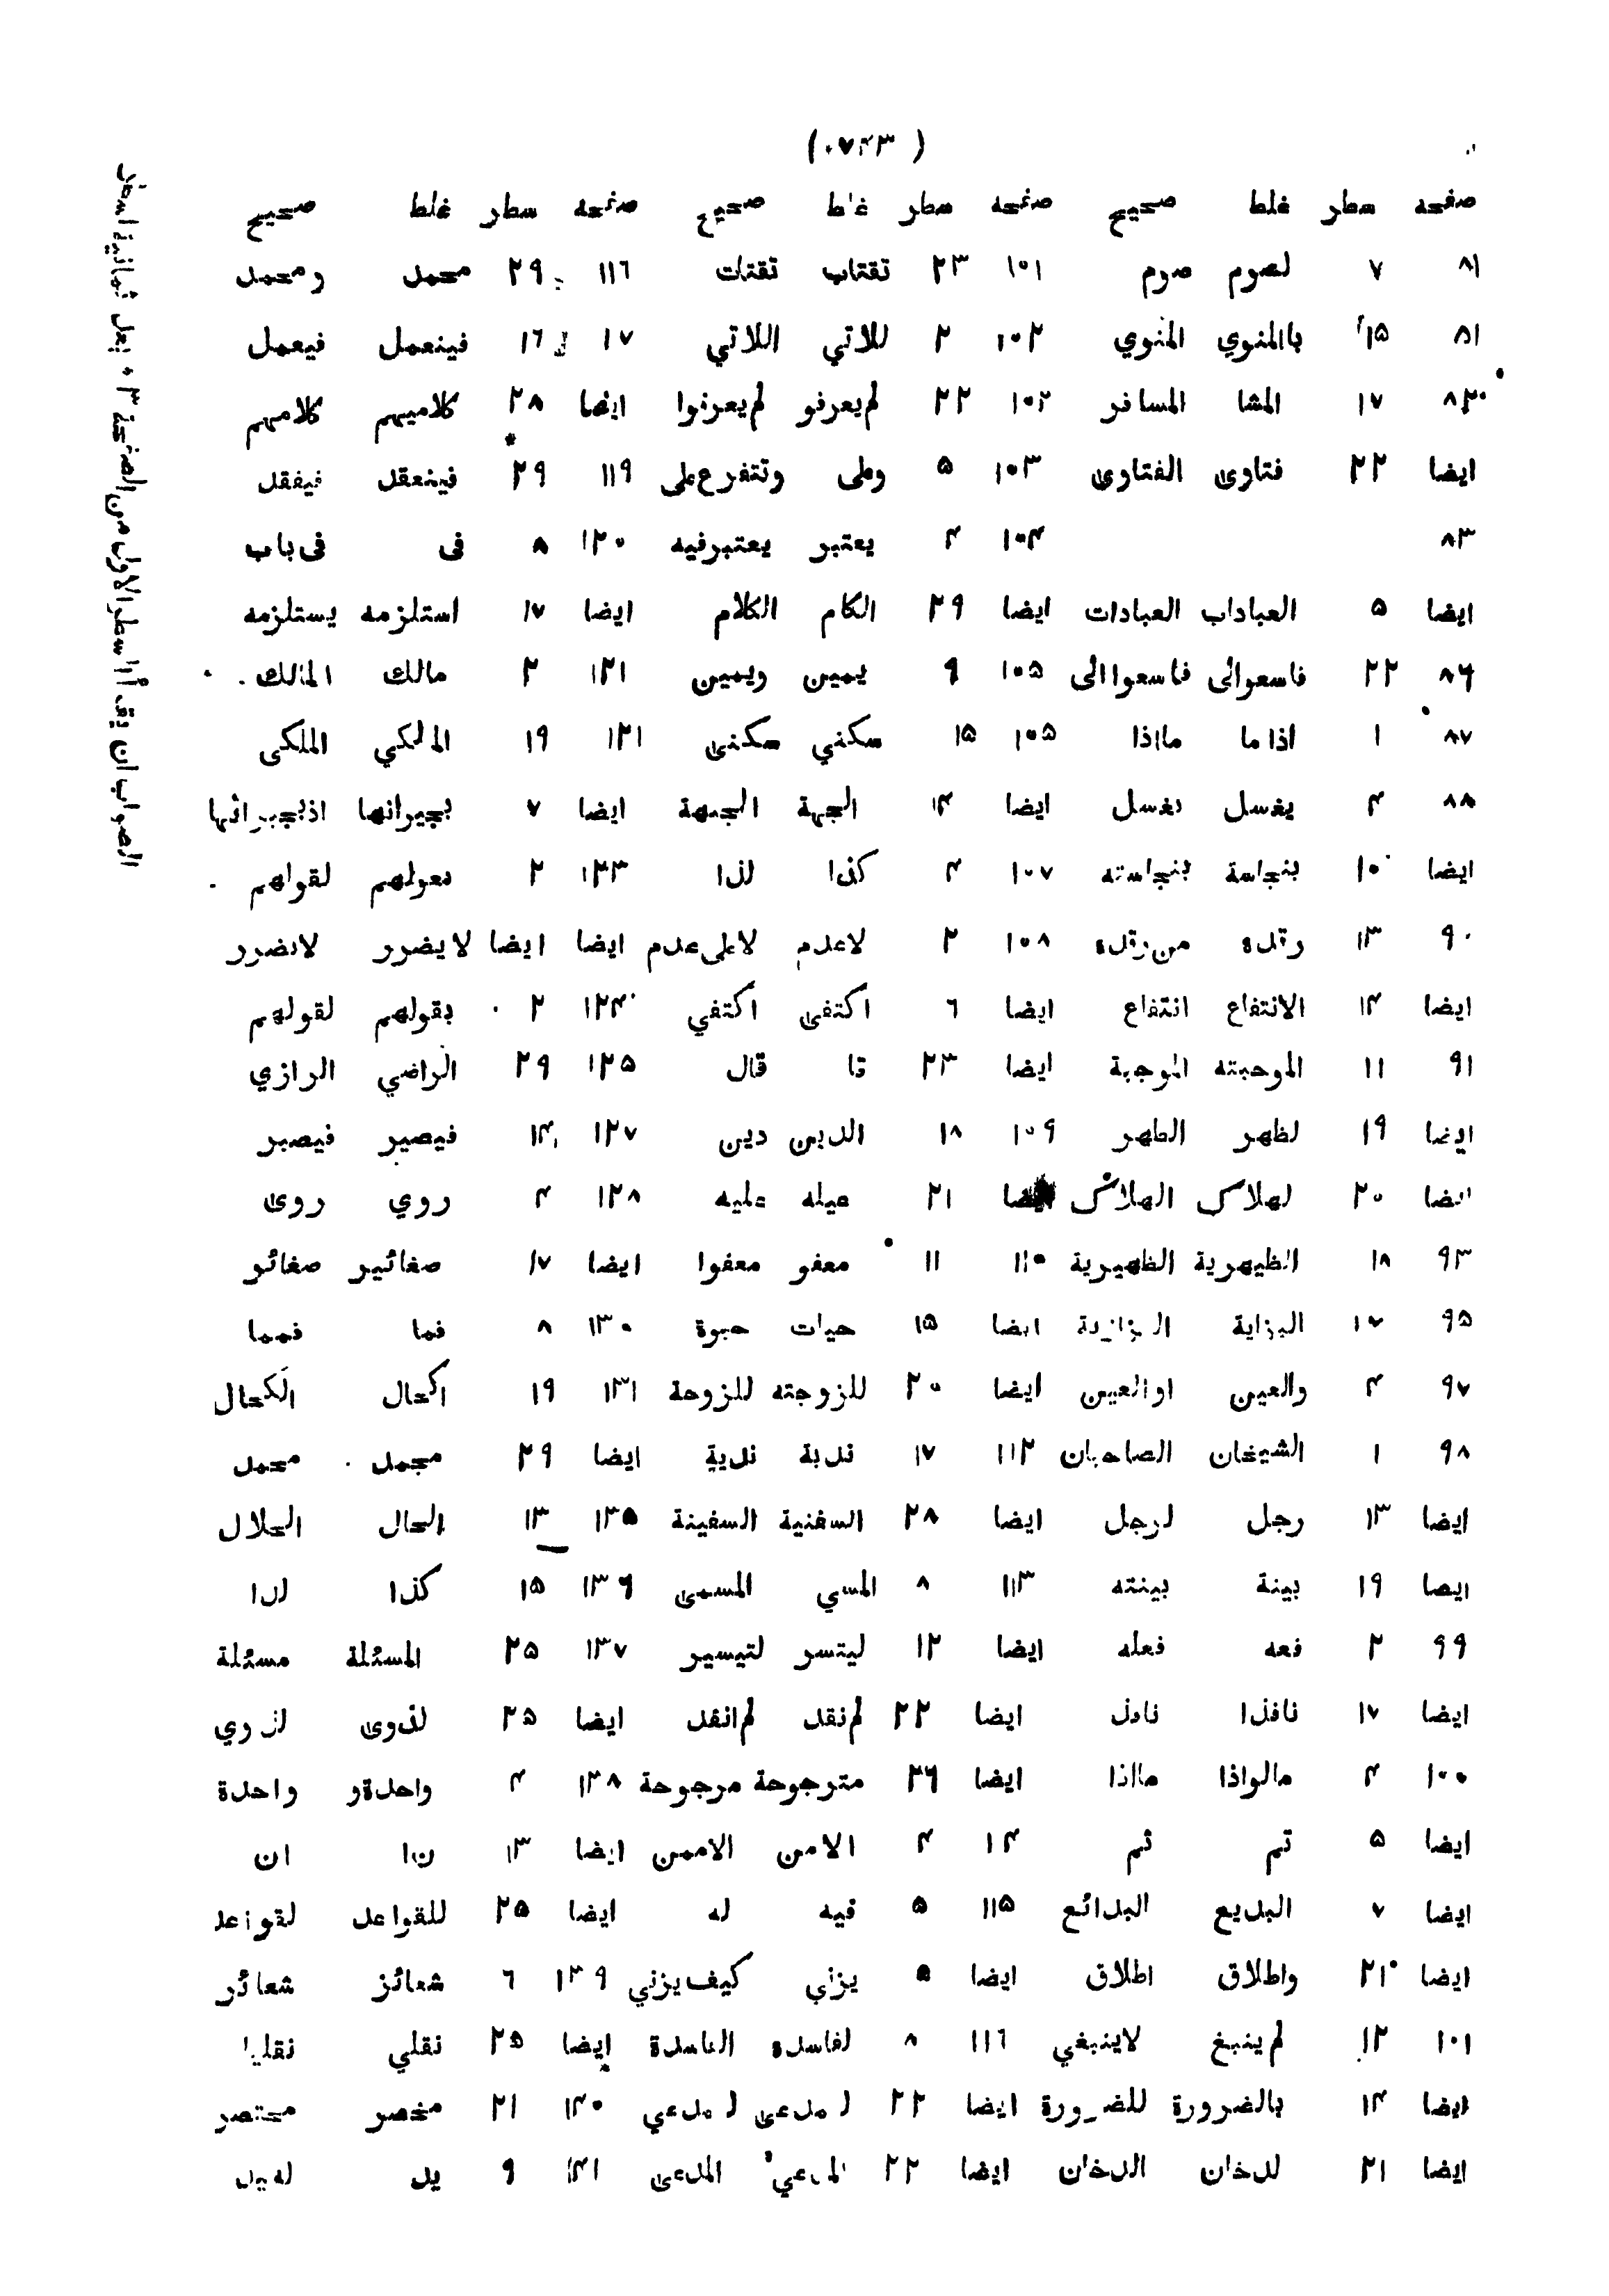 ( ٠٧۴٣ )
صفحه سطر غلط صحيح صفحه سطر غلط صحيح صفحه سطر غلط صحيح
٨١ ٧ لصوم صوم ١٠١ ٢٣ تقتاب تقتات ١١٦ ٢٩ محمد ومحمد
٨١ ١۵ باالمنوي المنوي ١٠٢ ٢ للاتي اللاتي ١٧ ١٦ فينعمل فيعمل
٨٢ ١٧ المشا المسافر ١٠٢ ٢٢ لم يعرفو لم يعرفوا ايضا ٢٨ كلاميهم كلامهم
ايضا ٢٢ فتاوى الفتاوى ١٠٣ ۵ وعلى وتتفرع على ١١٩ ٢٩ فينعقل فيفقل
٨٣ ١٠۴ ۴ يعتبر يعتبرفيه ١٢٠ ٨ فى فى باب
ايضا ۵ العباداب العبادات ايضا ٢٩ الكام الكلام ايضا ١٧ استلزمه يستلزمه
٨۶ ٢٢ فاسعوالى فاسعواالى ١٠۵ ٩ يمين ويمين ١٢١ ٢ مالك المالك
٨٧ ١ اذاما مااذا ١٠۵ ١۵ سكني سكنى ١٢١ ١٩ المالكي الملكى
٨٨ ۴ يغسل نغسل ايضا ١۴ الجهة الجبهة ايضا ٧ بجيرانها اذبجيرانها
ايضا ١٠ بنجاسة بنجاسته ١٠٧ ۴ كذا لذا ١٢٣ ٢ بعولهم لقولهم
٩٠ ١٣ رقده من رقده ١٠٨ ٢ لاعدم لاعلى عدم ايضا ايضا لايضرر لانضرر
ايضا ١۴ الانتفاع انتفاع ايضا ٦ اكتفى اكتفي ١٢۴ ٢ بقولهم لقولهم
٩١ ١١ الموحبته الموجبة ايضا ٢٣ قا قال ١٢۵ ٢٩ الراضي الرازي
ايضا ١٩ لظهر الطهر ١٠٩ ١٨ الدين دين ١٢٧ ١۴ فيصير فيصبر
ايضا ٢٠ لهلاك الهلاك ايضا ٢١ عيله عليه ١٢٨ ۴ روي روى
٩٣ ١٨ الظيهرية الظهيرية ١١٠ ١١ معفو معفوا ايضا ١٧ صغائير صغائر
٩۵ ١٧ البزاية البزازية ايضا ١۵ حيات حيوة ١٣٠ ٨ فما فمما
٩٧ ۴ والعين اوالعين ايضا ٢٠ للزوجته للزوجة ١٣١ ١٩ اكحال الكحال
٩٨ ١ الشيخان الصاحبان ١١٢ ١٧ ندبة ندية ايضا ٢٩ مجمد محمد
ايضا ١٣ رجل لرجل ايضا ٢٨ السفنية السفينة ١٣۵ ١٣ الحال الحلال
ايضا ١٩ بينة بينته ١١٣ ٨ المسي المسمى ١٣۶ ١۵ كذا لذا
٩٩ ٢ فعه فعله ايضا ١٢ ليتسر لتيسير ١٣٧ ٢۵ المسئلة مسئلة
ايضا ١٧ نافذا نافذ ايضا ٢٢ لم نقد لم انقد ايضا ٢۵ لذوى لذوي
١٠٠ ۴ مالواذا مااذا ايضا ٢۶ مترجوحة مرجوحة ١٣٨ ۴ واحدةو واحدة
ايضا ۵ تم ثم ١۴ ۴ الامن الاممن ايضا ١٣ نا ان
ايضا ٧ البديع البدائع ١١۵ ۵ فيه له ايضا ٢۵ للقواعد لقواعد
ايضا ٢١ واطلاق اطلاق ايضا ۵ يزني كيف يزني ١٣٩ ٦ شعائز شعائر
١٠١ ١٢ لم ينبغ لاينبغي ١١٦ ٨ لفاسدة الفاسدة ايضا ٢۵ نقلي نقليا
ايضا ١۴ بالضرورة للضرورة ايضا ٢٢ لمدعى لمدعي ١۴٠ ٢١ مخصر مختصر
ايضا ٢١ لدخان الدخان ايضا ٢٢ المدعي المدعى ١۴١ ٩ يد
الصواب ان يقرأ السطر الاول من الصفحة ٣٠ بعد ثمانية اسطر